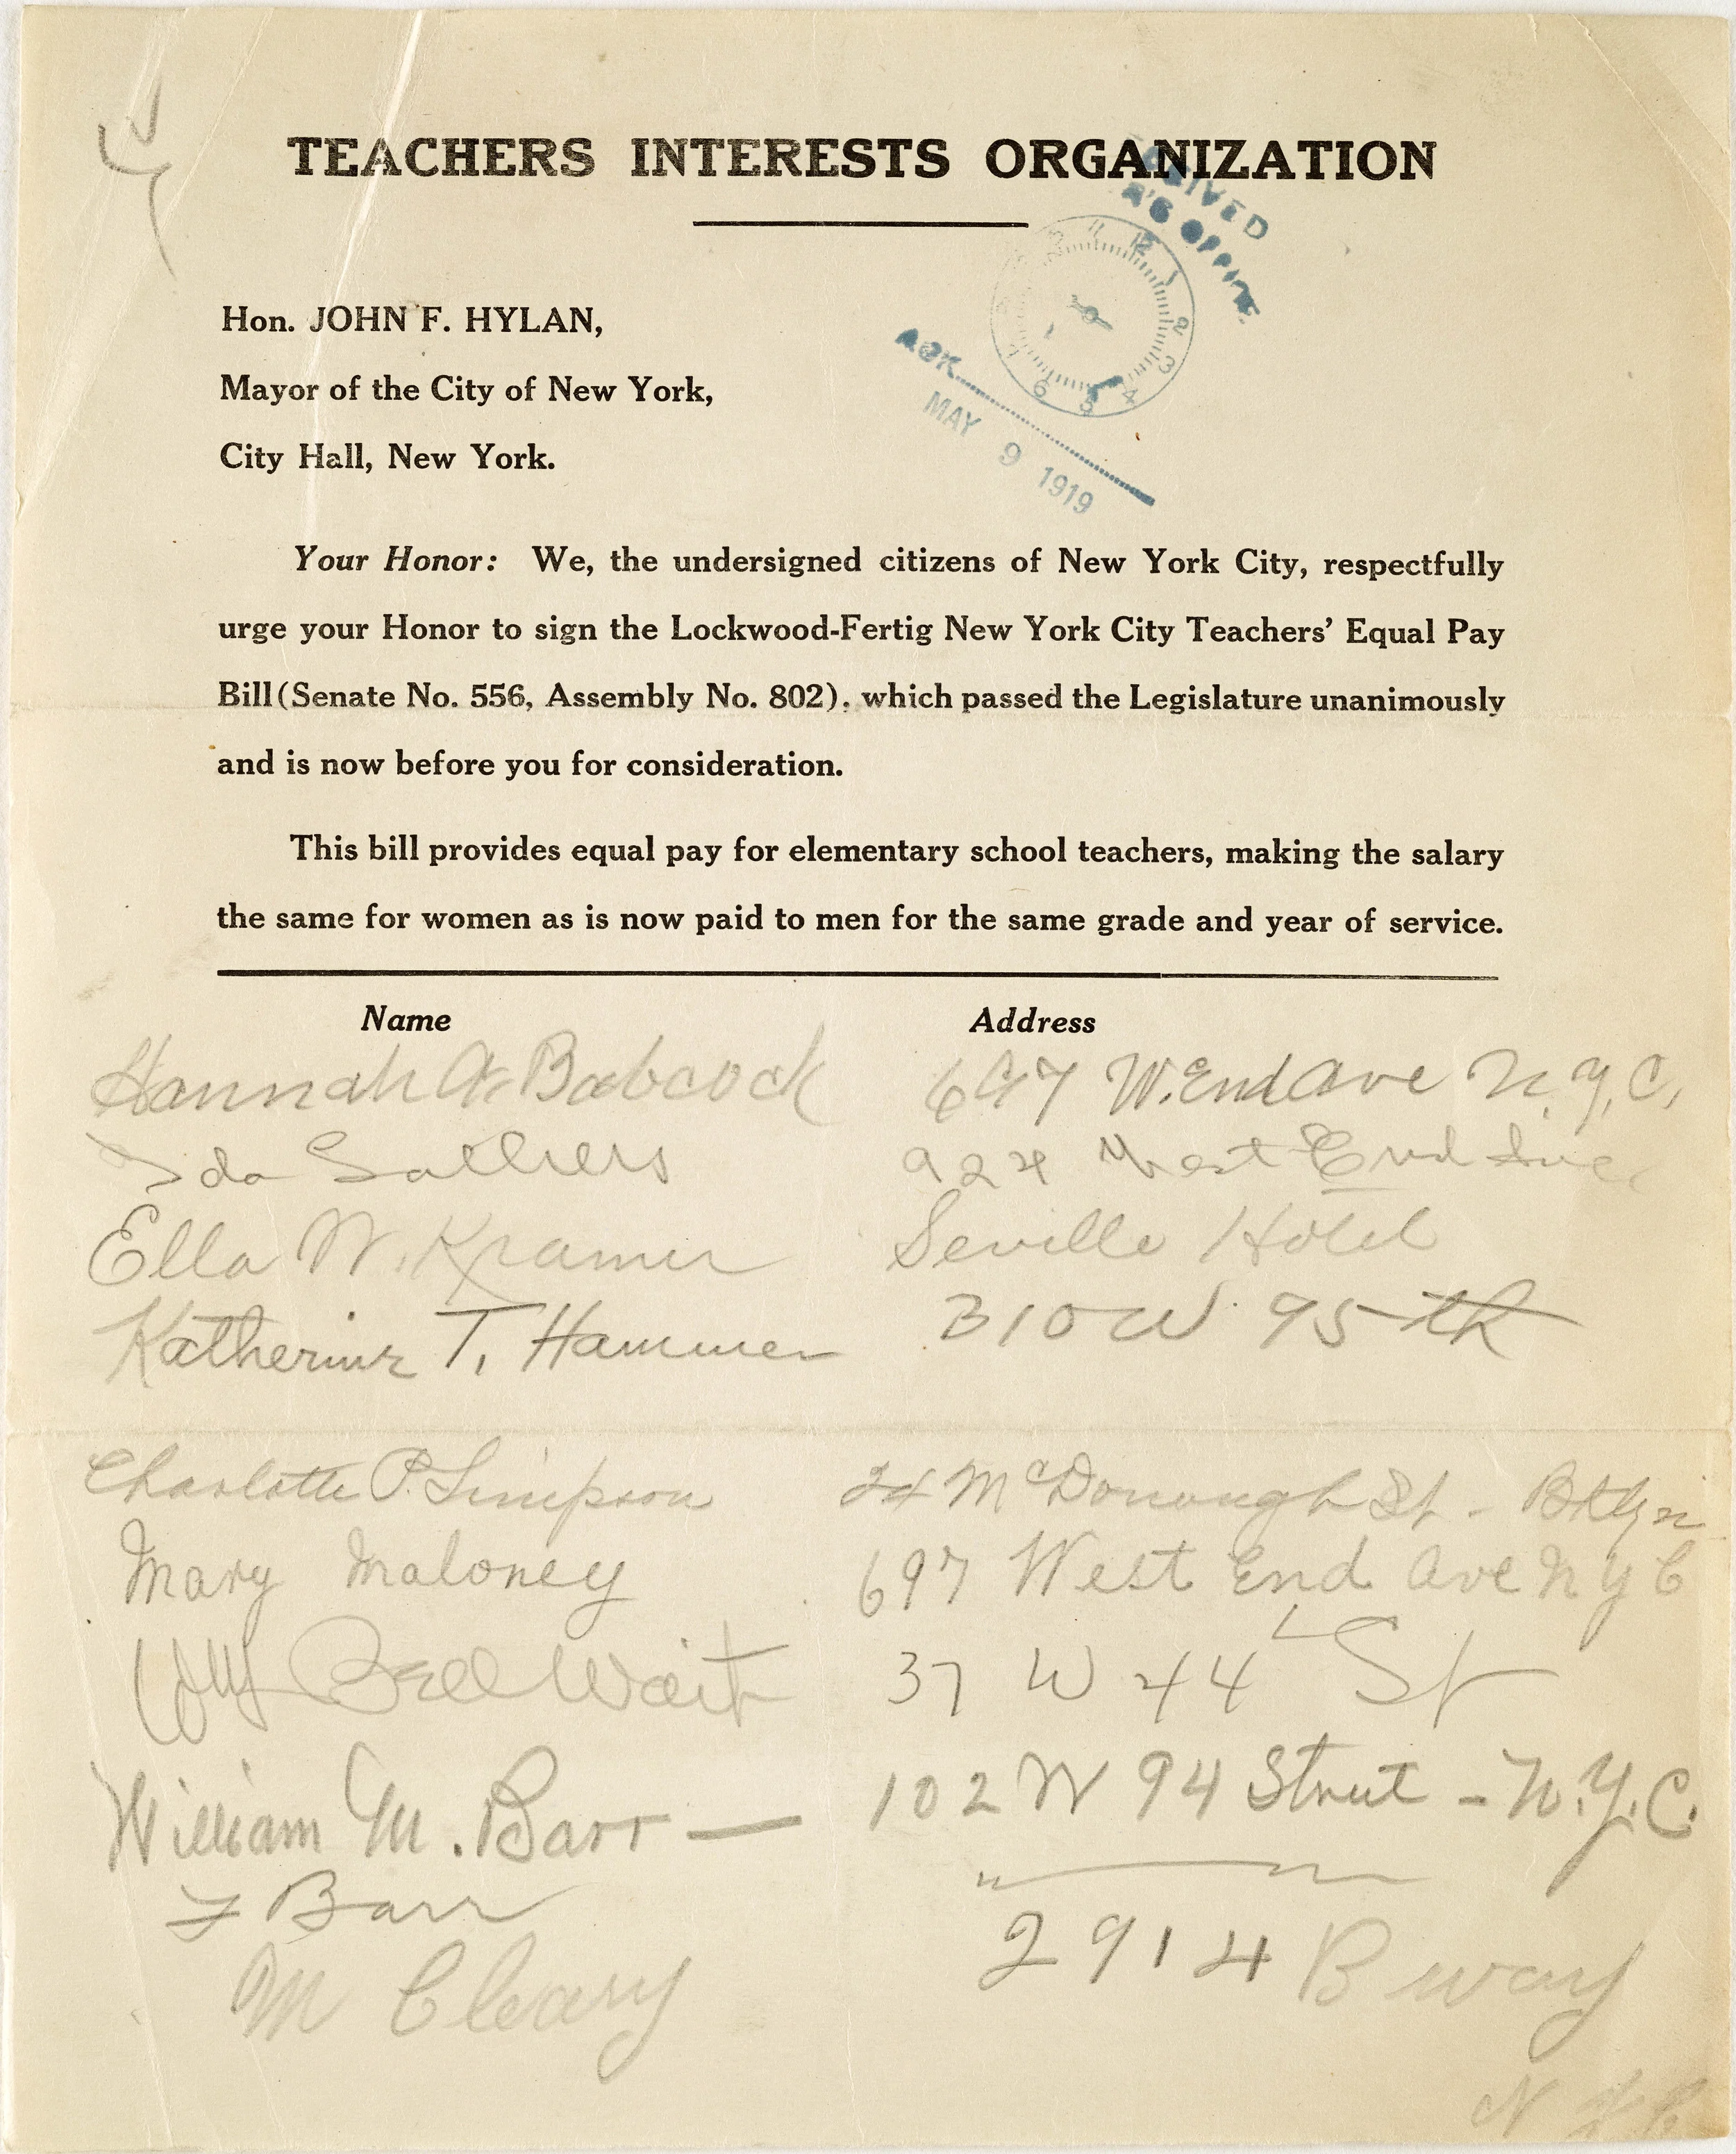 TEACHERS INTERESTS ORGANIZATION
Hon. JOHN F. HYLAN,
Mayor of the City of New York,
City Hall, New York.
ACK
MAY 9 1919
Your Honor: We, the undersigned citizens of New York City, respectfully
urge your Honor to sign the Lockwood-Fertig New York City Teachers' Equal Pay
Bill (Senate No. 556, Assembly No. 802), which passed the Legislature unanimously
and is now before you for consideration.
This bill provides equal pay for elementary school teachers, making the salary
the same for women as is now paid to men for the same grade and year of service.
Name Address
Hannah A. Babcock 697 W. End Ave N.Y.C.
Ida 924 West End Ave.
Ella W. Kramer Seville Hotel
Katherine T. Hammer 310 W. 95th
Charlotte P. Simpson McDonough St. - Bklyn
Mary Maloney 697 West End Ave N Y C
Wm Bell Wait 37 W 44 St
William M. Barr — 102 W 94 Street - N.Y.C.
F Barr "
M Cleary 2914 B way
N Y C